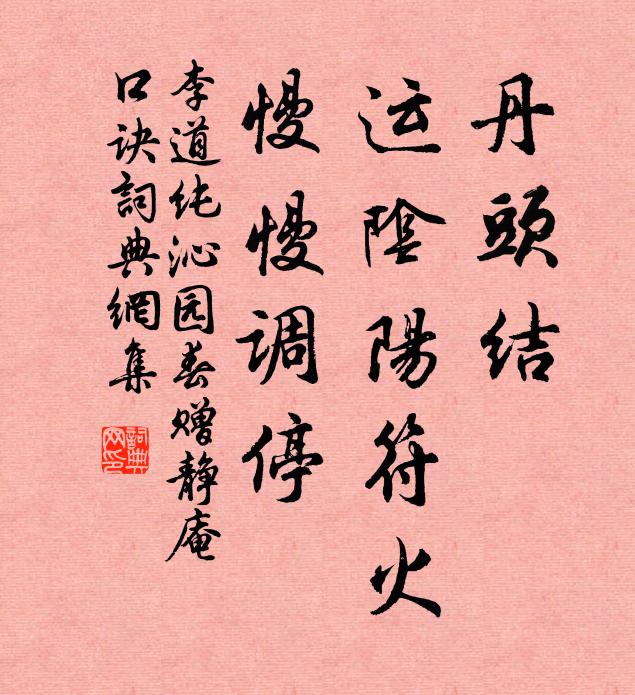 丹頭结
运陰陽符火
慢慢调停
李道纯沁园春赠静庵
口诀詞典網集
詞典网印